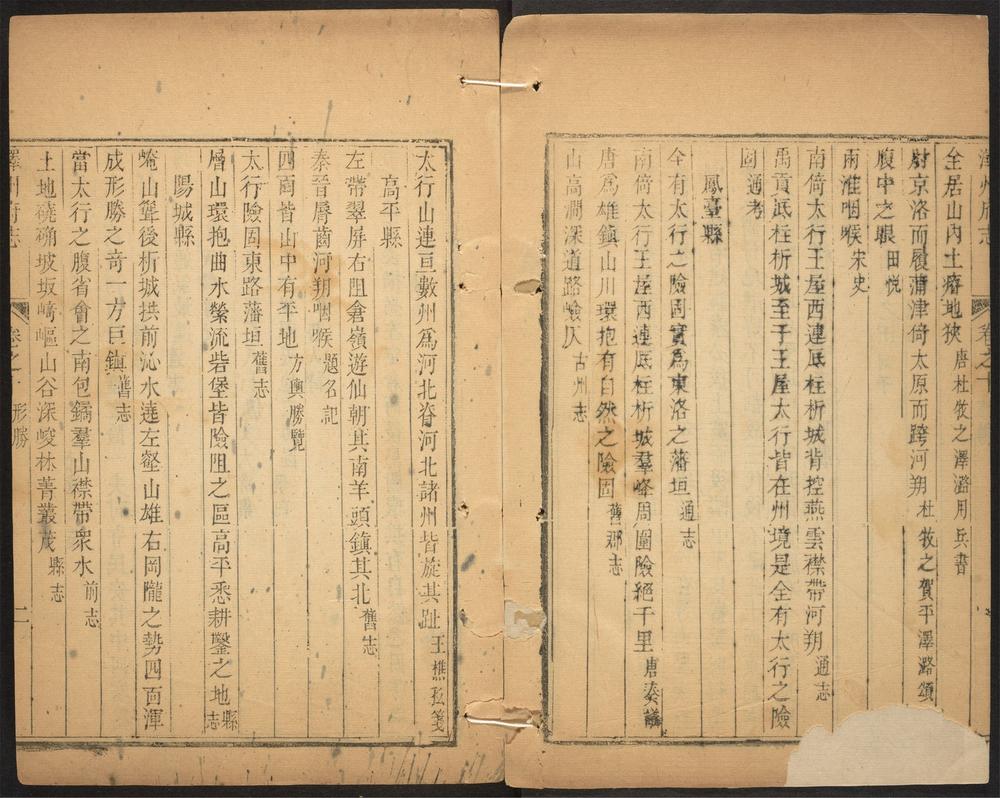 澤州府志
卷之十
全居山內土瘠地狹唐杜牧之澤潞用兵書
尉京洛而履蒲津倚太原而跨河朔杜牧之賀平澤潞頌
腹中之眼田悅
兩淮咽喉宋史
南倚太行王屋西連底柱析城背控燕雲襟帶河朔通志
禹貢底柱析城至于王屋太行皆在州境是全有太行之險
固通考
鳳臺縣
全有太行之險固實為東洛之藩垣通志
南倚太行王屋西連底柱析城羣峰周圍險絕千里唐奏議
唐爲雄鎮山川環抱有自然之險固舊郡志
山高澗深道路險仄古州志
太行山連亘數州爲河北脊河北諸州皆旋其趾王樵私箋
高平縣
左帶翠屏右阻倉嶺遊仙朝其南羊頭鎮其北舊志
秦晉脣齒河朔咽喉題名記
四面皆山中有平地方輿勝覽
太行險固東路藩垣舊志
層山環抱曲水縈流砦堡皆險阻之區高平悉耕鑿之地縣志
陽城縣
崦山聳後析城拱前沁水遶左壑山雄右岡隴之勢四面渾
成形勝之奇一方巨鎮舊志
當太行之腹省會之南包鐍羣山襟帶衆水前志
土地磽确坡坂崎嶇山谷深峻林菁叢茂縣志
澤州府志
卷之十
形勝
二